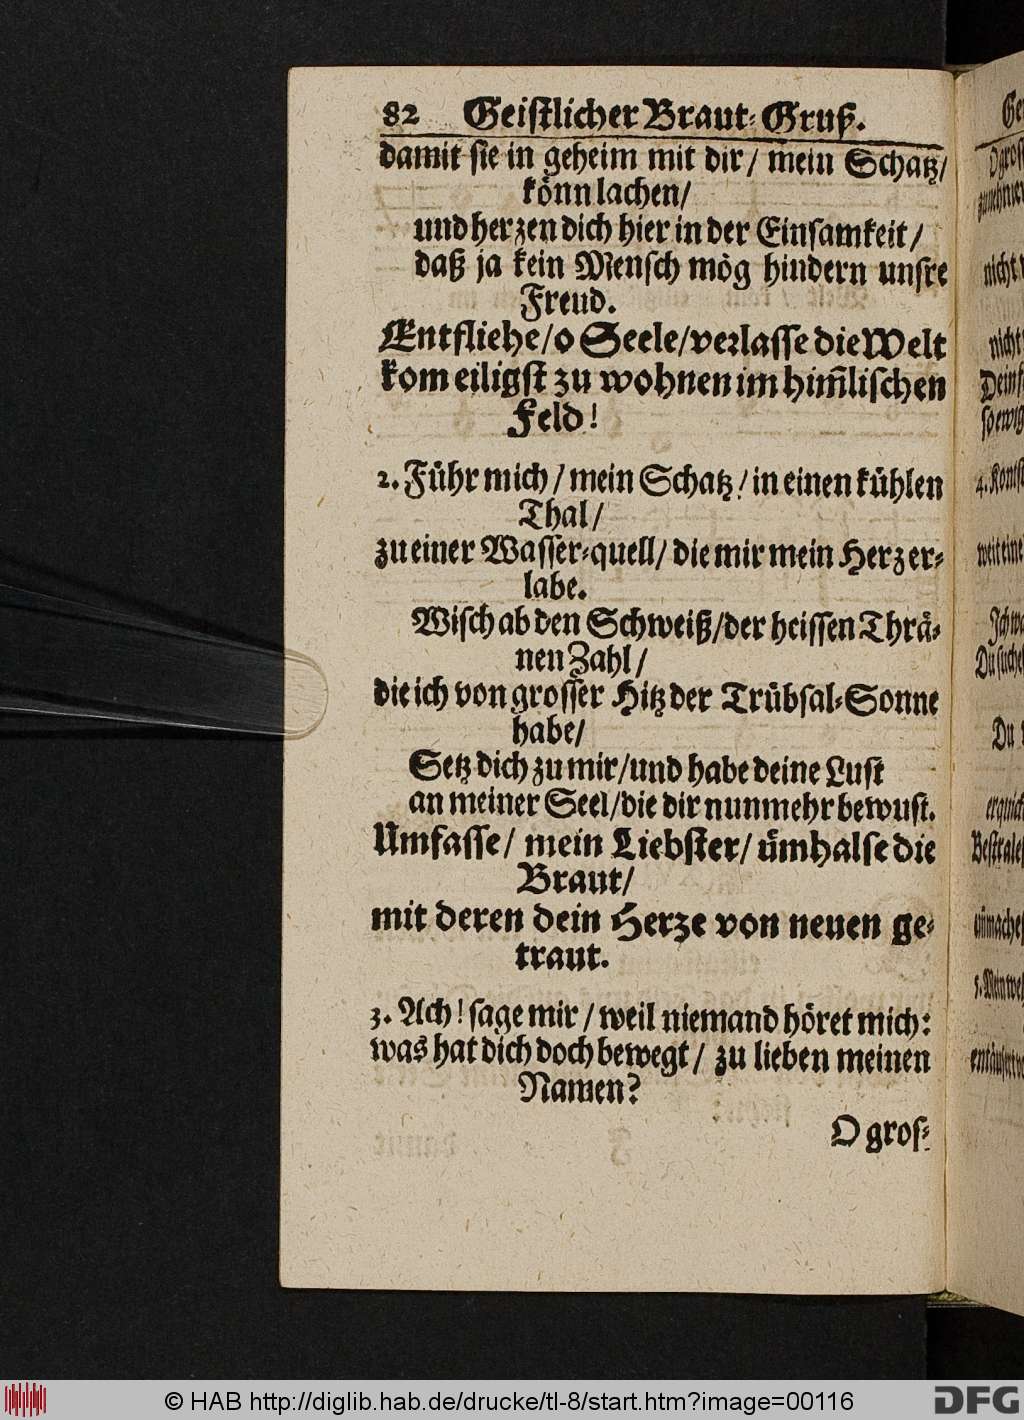 82 Geistlicher Braut-Gruß.
damit sie in geheim mit dir / mein Schatz /
könn lachen /
und herzen dich hier in der Einsamkeit /
daß ja kein Mensch mög hindern unsre
Freud.
Entfliehe / o Seele / verlasse die Welt
kom eiligst zu wohnen im him̃lischen
Feld!
2. Führ mich / mein Schatz / in einen kühlen
Thal /
zu einer Wasser-quell / die mir mein Herz er-
labe.
Wisch ab den Schweiß / der heissen Thrä-
nen Zahl /
die ich von grosser Hitz der Trübsal-Sonne
habe /
Setz dich zu mir / und habe deine Lust
an meiner Seel / die dir nunmehr bewust.
Umfasse / mein Liebster / ümhalse die
Braut /
mit deren dein Herze von neuen ge-
traut.
3. Ach! sage mir / weil niemand höret mich:
was hat dich doch bewegt / zu lieben meinen
Namen?
O gros-
nicht
nicht
Du
© HAB http://diglib.hab.de/drucke/tl-8/start.htm?image=00116
DFG